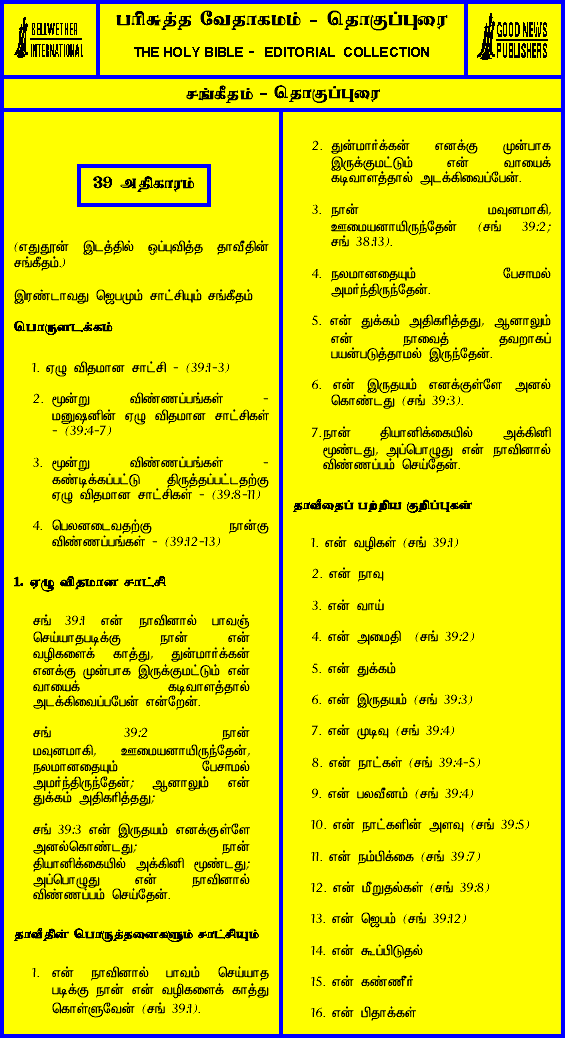 BELLWETHER
INTERNATIONAL
பரிசுத்த வேதாகமம் - தொகுப்புரை
THE HOLY BIBLE - EDITORIAL COLLECTION
GOOD NEWS
PUBLISHERS
சங்கீதம் - தொகுப்புரை
39 அதிகாரம்
(எதுதூன் இடத்தில் ஒப்புவித்த தாவீதின்
சங்கீதம்.)
இரண்டாவது ஜெபமும் சாட்சியும் சங்கீதம்
பொருளடக்கம்
1. ஏழு விதமான சாட்சி - (39:1-3)
2. மூன்று விண்ணப்பங்கள் -
மனுஷனின் ஏழு விதமான சாட்சிகள்
- (39:4-7)
3. மூன்று விண்ணப்பங்கள் -
கண்டிக்கப்பட்டு திருத்தப்பட்டதற்கு
ஏழு விதமான சாட்சிகள் - (39:8-11)
4. பெலனடைவதற்கு நான்கு
விண்ணப்பங்கள் - (39:12-13)
1. ஏழு விதமான சாட்சி
சங் 39:1 என் நாவினால் பாவஞ்
செய்யாதபடிக்கு நான் என்
வழிகளைக் காத்து, துன்மார்க்கன்
எனக்கு முன்பாக இருக்குமட்டும் என்
வாயைக் கடிவாளத்தால்
அடக்கிவைப்பபேன் என்றேன்.
சங் 39:2 நான்
மவுனமாகி, ஊமையனாயிருந்தேன்,
நலமானதையும் பேசாமல்
அமர்ந்திருந்தேன்; ஆனாலும் என்
துக்கம் அதிகரித்தது;
சங் 39:3 என் இருதயம் எனக்குள்ளே
அனல்கொண்டது; நான்
தியானிக்கையில் அக்கினி மூண்டது;
அப்பொழுது என் நாவினால்
விண்ணப்பம் செய்தேன்.
தாவீதின் பொருத்தனைகளும் சாட்சியும்
1. என் நாவினால் பாவம் செய்யாத
படிக்கு நான் என் வழிகளைக் காத்து
கொள்ளுவேன் (சங் 39:1).
2. துன்மார்க்கன் எனக்கு முன்பாக
இருக்குமட்டும் என் வாயைக்
கடிவாளத்தால் அடக்கிவைப்பேன்.
3. நான் மவுனமாகி,
ஊமையனாயிருந்தேன் (சங் 39:2;
சங் 38:13).
4. நலமானதையும் பேசாமல்
அமர்ந்திருந்தேன்.
5. என் துக்கம் அதிகரித்தது, ஆனாலும்
என் நாவைத் தவறாகப்
பயன்படுத்தாமல் இருந்தேன்.
6. என் இருதயம் எனக்குள்ளே அனல்
கொண்டது (சங் 39:3).
7.நான் தியானிக்கையில் அக்கினி
மூண்டது, அப்பொழுது என் நாவினால்
விண்ணப்பம் செய்தேன்.
தாவீதைப் பற்றிய குறிப்புகள்
1. என் வழிகள் (சங் 39:1)
2. என் நாவு
3. என் வாய்
4. என் அமைதி (சங் 39:2)
5. என் துக்கம்
6. என் இருதயம் (சங் 39:3)
7. என் முடிவு (சங் 39:4)
8. என் நாட்கள் (சங் 39:4-5)
9. என் பலவீனம் (சங் 39:4)
10. என் நாட்களின் அளவு (சங் 39:5)
11. என் நம்பிக்கை (சங் 39:7)
12. என் மீறுதல்கள் (சங் 39:8)
13. என் ஜெபம் (சங் 39:12)
14. என் கூப்பிடுதல்
15. என் கண்ணீர்
16. என் பிதாக்கள்